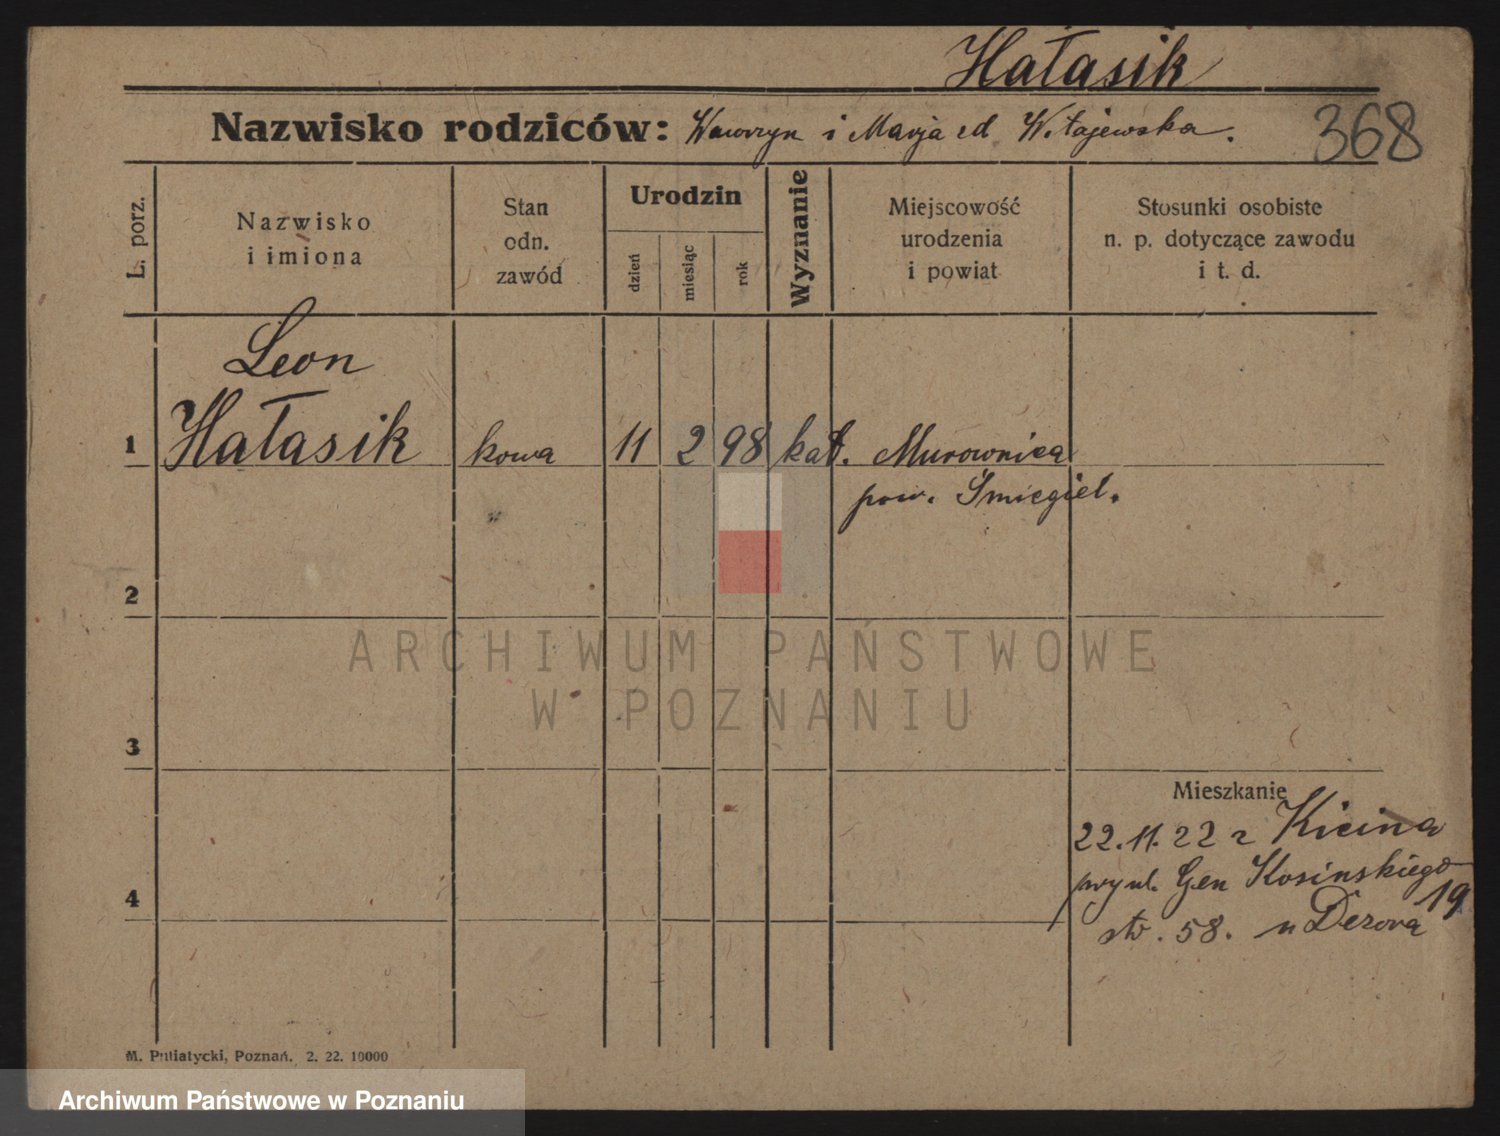 Hałasik
Nazwisko rodziców: Wawrzyn i Marja zd Witajewska.
368
L. porz.
Nazwisko
i imiona
Stan
odn.
zawód
Urodzin
dzień
miesiąc
rok
Wyznanie
Miejscowość
urodzenia
i powiat
Stosunki osobiste
n. p. dotyczące zawodu
i t. d.
Leon
1 Hałasik kowa 11 2 98 kat. Murownica
pow. Śmiegiel.
2
ARCHIWUM PAŃSTWOWE
W POZNANIU
3
Mieszkanie
22.11.22 z Kicina
przy ul. Gen Kosinskiego
19
4
str. 58. u Dezora
M. Putiatycki, Poznań. 2. 22. 10000
Archiwum Państwowe w Poznaniu